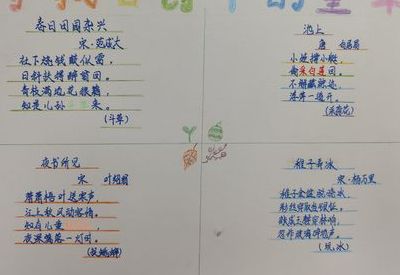 春日田园杂兴
宋·范成大
社下烧钱鼓似雷，
日斜扶得醉翁回。
青枝满地花狼藉，
知是儿孙斗草来。
(斗草)
池上
唐 白居易
小娃撑小艇，
偷采白莲回。
不解藏踪迹，
浮萍一道开。
夜书所见
宋 叶绍翁
萧萧梧叶送寒声，
江上秋风动客情。
知有儿童
夜深篱落一灯明。
稚子弄冰
宋·杨万里
稚子金盆脱晓冰，
彩丝穿取当银钲。
敲成玉磬穿林响，
忽作玻璃碎地声。
(玩冰)